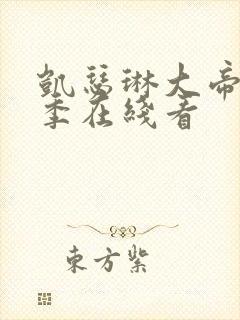 凯瑟琳大帝
季在线看
东方紫